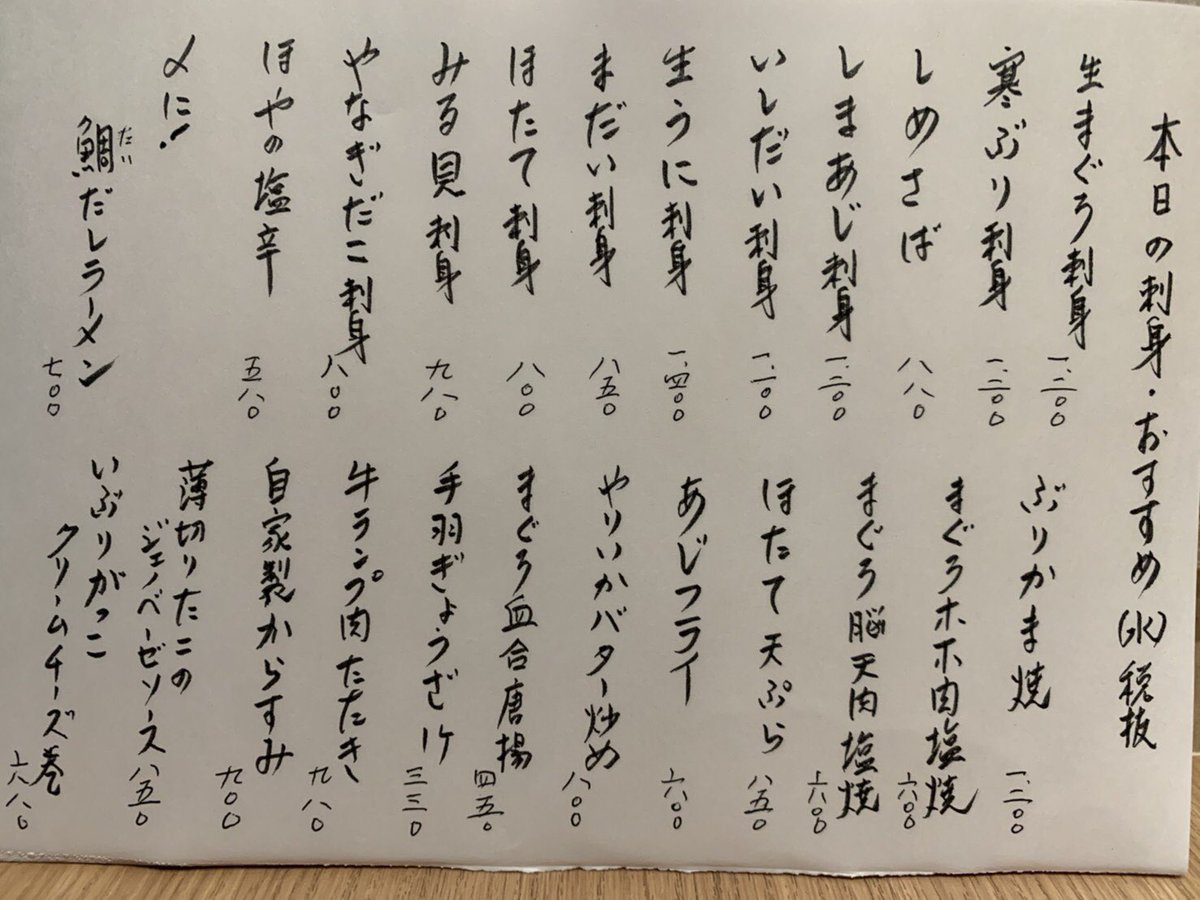 本日の刺身・おすすめ(水)税抜
生まぐろ刺身 一、二〇〇
寒ぶり刺身 一、二〇〇
しめさば 八八〇
しまあじ刺身 一、二〇〇
いしだい刺身 一、一〇〇
生うに刺身 一、四〇〇
まだい刺身 八五〇
ほたて刺身 八〇〇
みる貝刺身 九八〇
やなぎだこ刺身 八〇〇
ほやの塩辛 五八〇
〆に!
鯛だしラーメン 七〇〇
たい
ぶりかま焼 一、二〇〇
まぐろホホ肉塩焼 六八〇
まぐろ脳天肉塩焼 六八〇
ほたて天ぷら 八五〇
あじフライ 六八〇
やりいかバター炒め 八〇〇
まぐろ血合唐揚 四五〇
手羽ぎょうざ1ケ 三三〇
牛ランプ肉たたき 九八〇
自家製からすみ 九〇〇
薄切りたこの
ジェノベーゼソース 八五〇
いぶりがっこ
クリームチーズ巻 六八〇